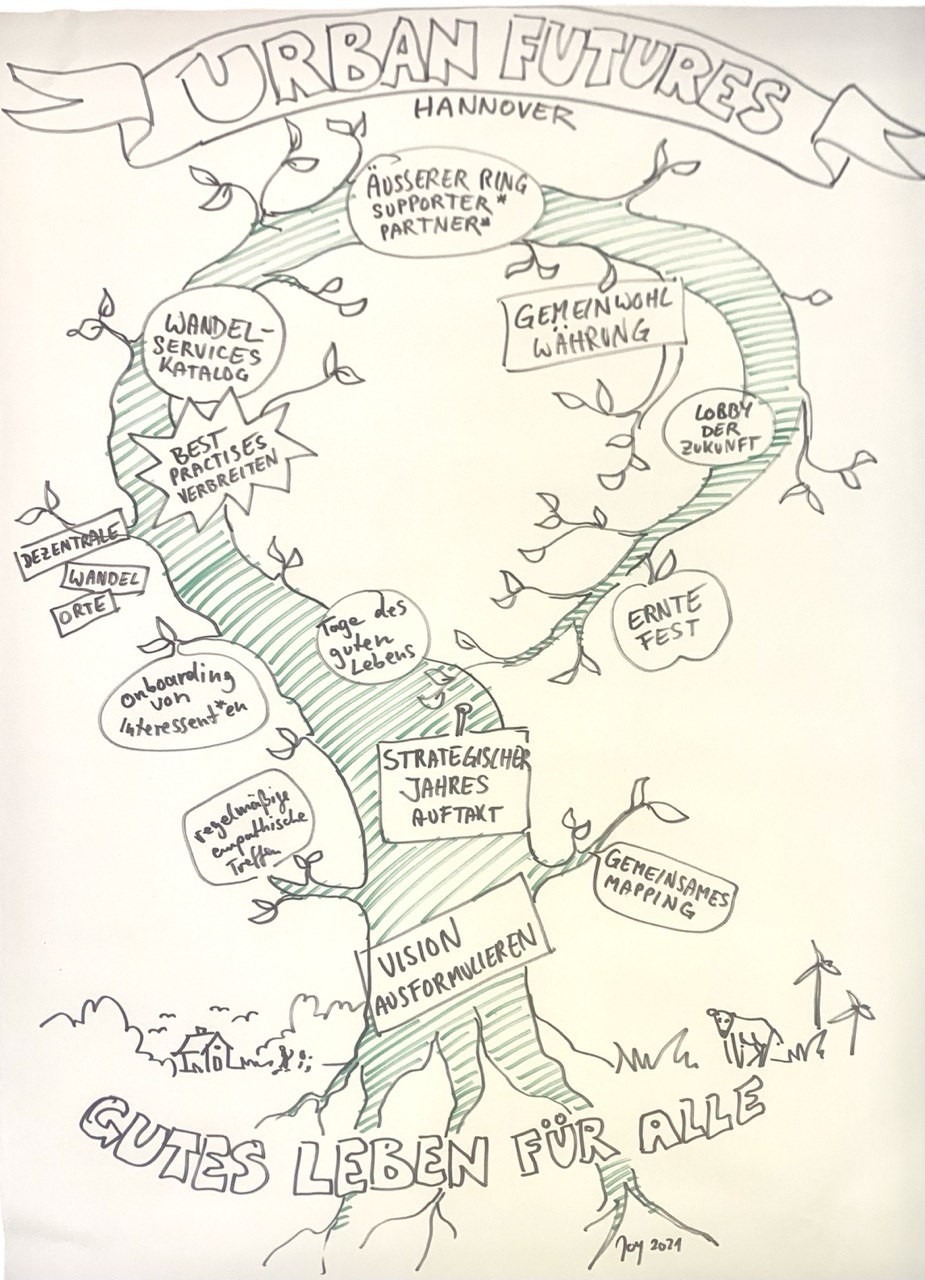 URBAN FUTURES
HANNOVER
ÄUSSERER RING
SUPPORTER*
PARTNER*
WANDEL-
SERVICES
KATALOG
GEMEINWOHL
WÄHRUNG
BEST
PRACTISES
VERBREITEN
LOBBY
DER
ZUKUNFT
DEZENTRALE
WANDEL
ORTE
Tage des
guten
Lebens
ERNTE
FEST
onboarding
von
Interessent*en
STRATEGISCHER
JAHRES
AUFTAKT
regelmäßige
empathische
Treffen
GEMEINSAMES
MAPPING
VISION
AUSFORMULIEREN
GUTES LEBEN FÜR ALLE
Joy 2021